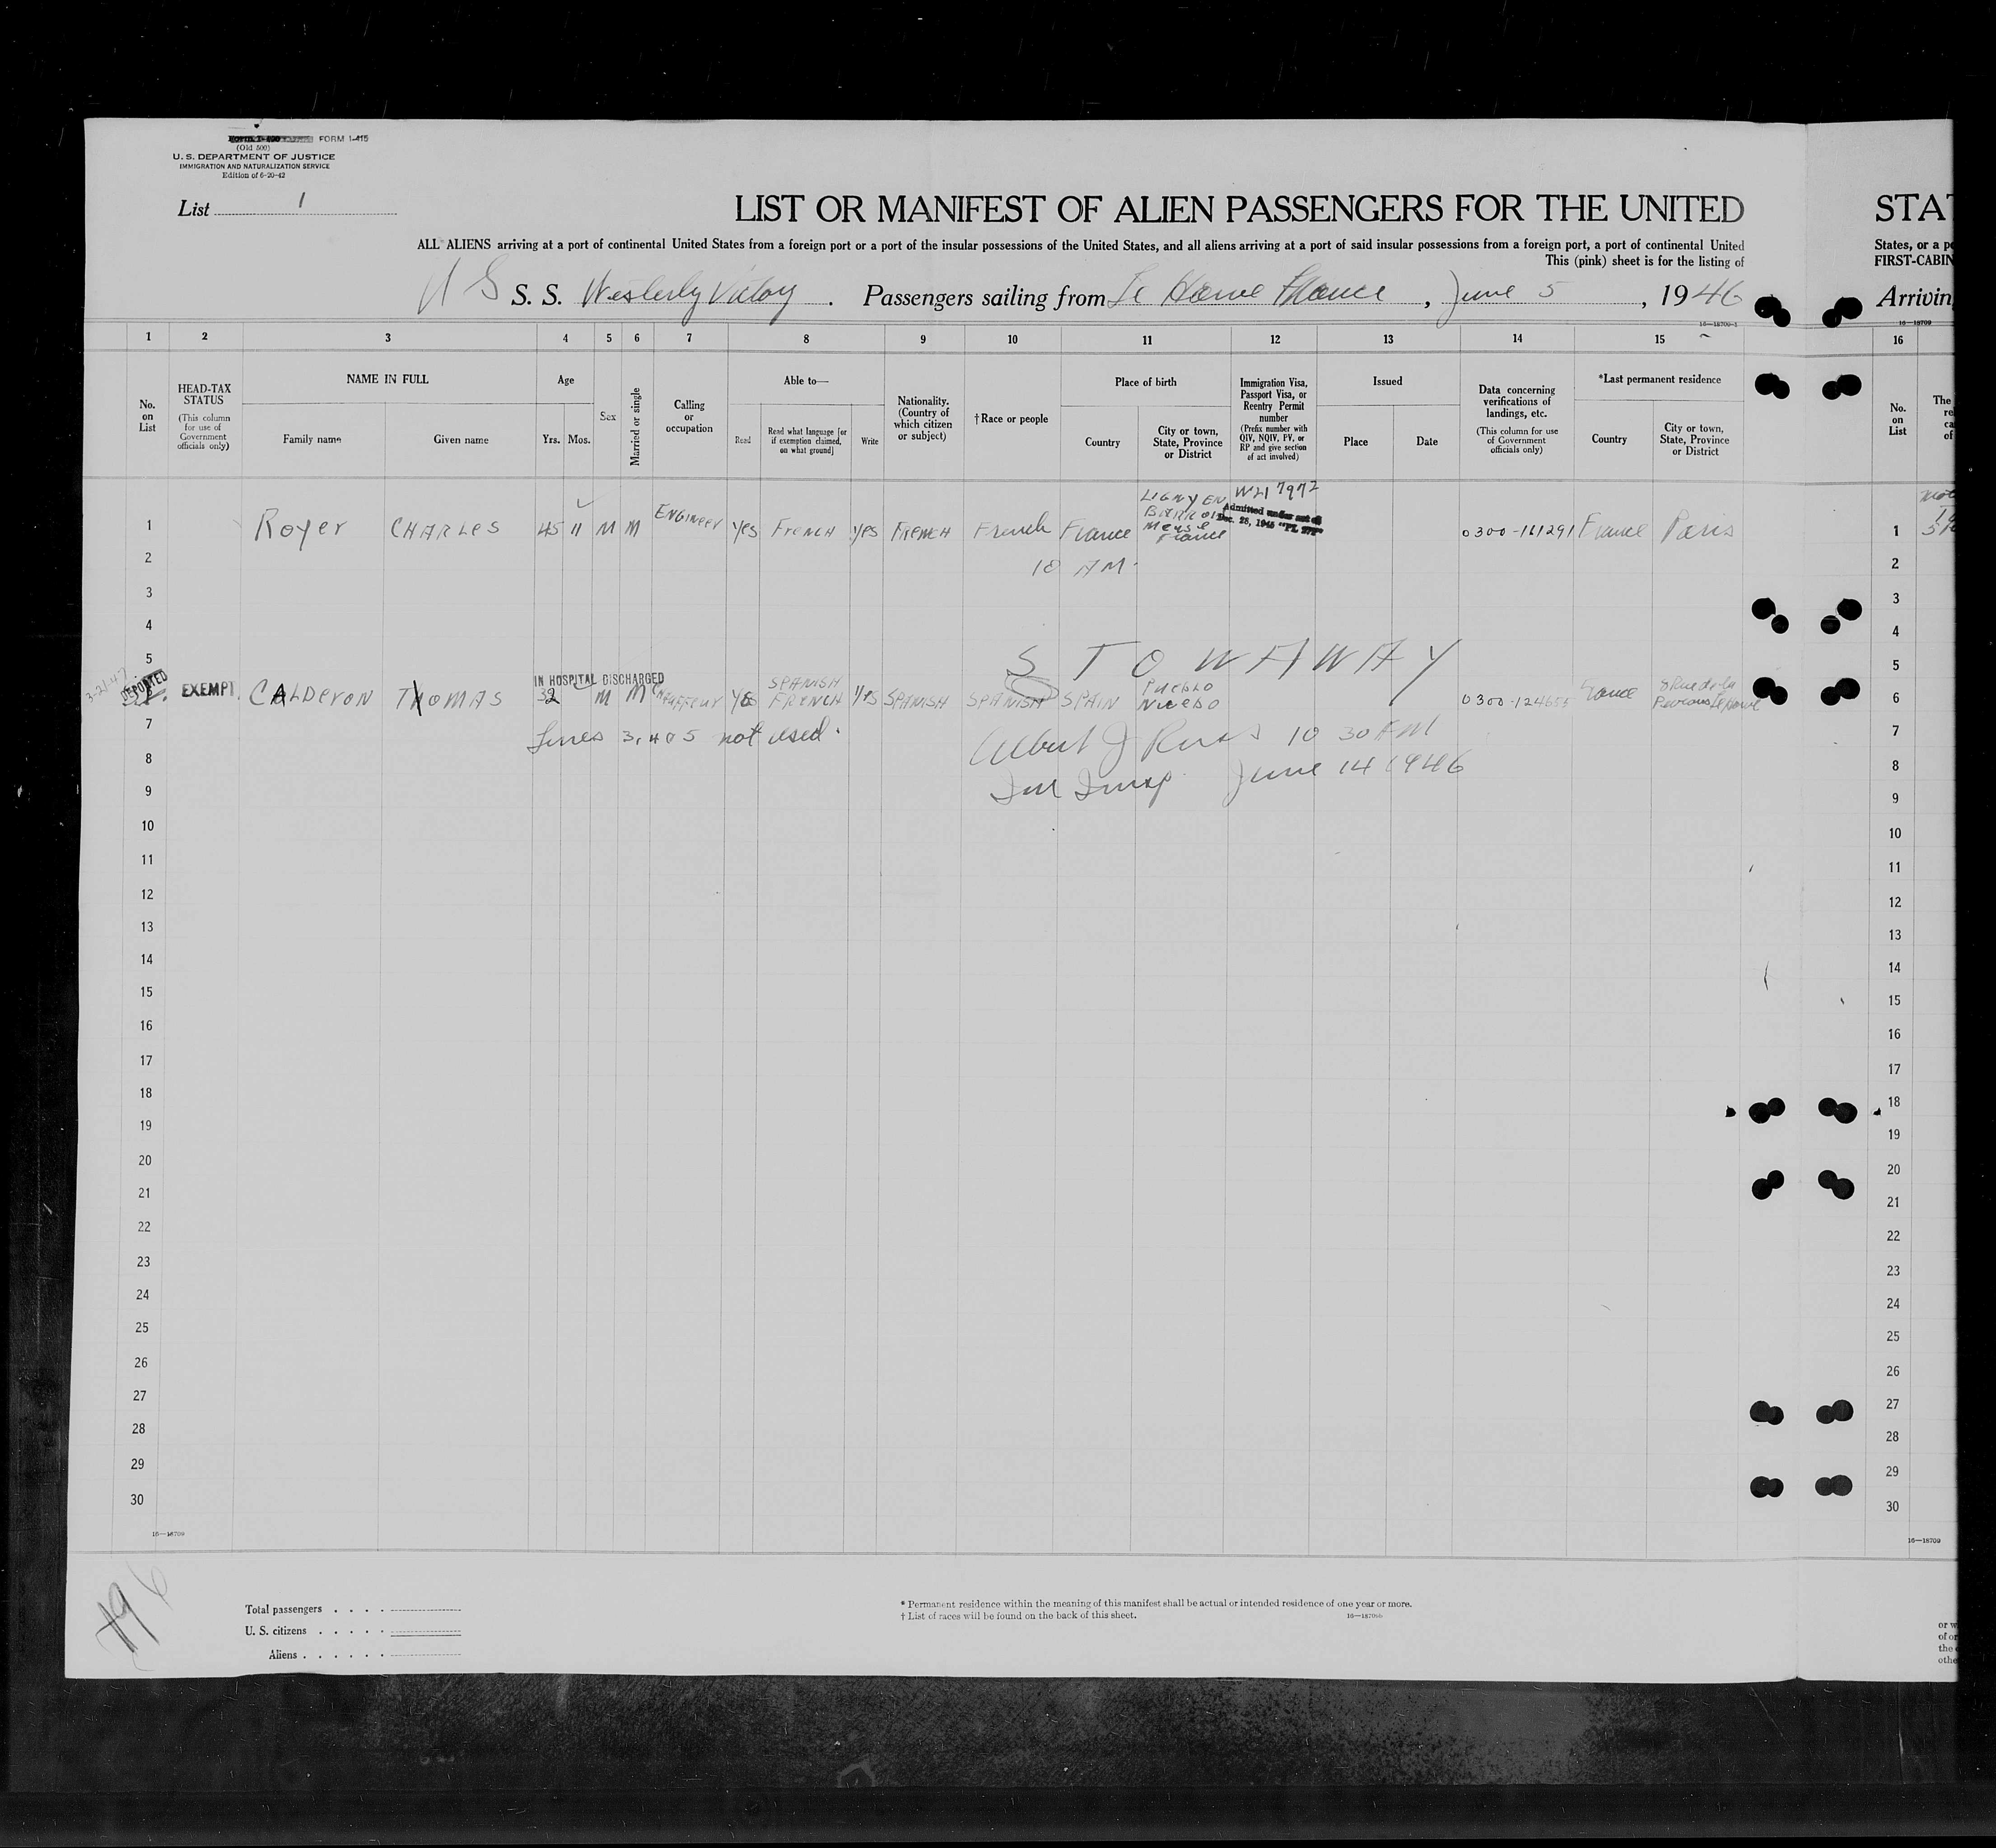 FORM I-415
(Old 500)
U. S. DEPARTMENT OF JUSTICE
IMMIGRATION AND NATURALIZATION SERVICE
Edition of 6-20-42
List 1
LIST OR MANIFEST OF ALIEN PASSENGERS FOR THE UNITED
ALL ALIENS arriving at a port of continental United States from a foreign port or a port of the insular possessions of the United States, and all aliens arriving at a port of said insular possessions from a foreign port, a port of continental United
This (pink) sheet is for the listing of
U S S. S. Westerly Victory . Passengers sailing from Le Havre France , June 5 , 1946
16—18709-1
1 2 3 4 5 6 7 8 9 10 11 12 13 14 15
No. on List
HEAD-TAX STATUS
(This column for use of Government officials only)
NAME IN FULL
Family name
Given name
Age
Yrs. Mos.
Sex
Married or single
Calling or occupation
Able to—
Read
Read what language [or if exemption claimed, on what ground]
Write
Nationality. (Country of which citizen or subject)
†Race or people
Place of birth
Country
City or town, State, Province or District
Immigration Visa, Passport Visa, or Reentry Permit number
(Prefix number with QIV, NQIV, PV, or RP and give section of act involved)
Issued
Place
Date
Data concerning verifications of landings, etc.
(This column for use of Government officials only)
*Last permanent residence
Country
City or town, State, Province or District
1 Royer CHARLES 45 11 M M ENGINEER yes FRENCH yes FRENCH French France LIGNY EN BARROIS Meuse France W21 7972 Admitted under act of Dec. 28, 1945 "PL 271" 0300-161291 France Paris
2 10 AM.
3
4
5 STOWAWAY
3-21-47 DEPORTED
IN HOSPITAL DISCHARGED
6 EXEMPT CALDERON THOMAS 32 M M CHAUFFEUR yes SPANISH FRENCH yes SPANISH SPANISH SPAIN Pueblo Nuebo France
7 Lines 3, 4 & 5 not used. Albert J 10 30 AM
8 Imm Insp June 14 1946
9
10
11
12
13
14
15
16
17
18
19
20
21
22
23
24
25
26
27
28
29
30
16—18709
Total passengers
U. S. citizens
Aliens
* Permanent residence within the meaning of this manifest shall be actual or intended residence of one year or more.
† List of races will be found on the back of this sheet.
STAT
States, or a po
FIRST-CABIN
Arrivin
16—18709
16
No. on List
The
1
2
3
4
5
6
7
8
9
10
11
12
13
14
15
16
17
18
19
20
21
22
23
24
25
26
27
28
29
30
16—18709
or w
of or
the
othe